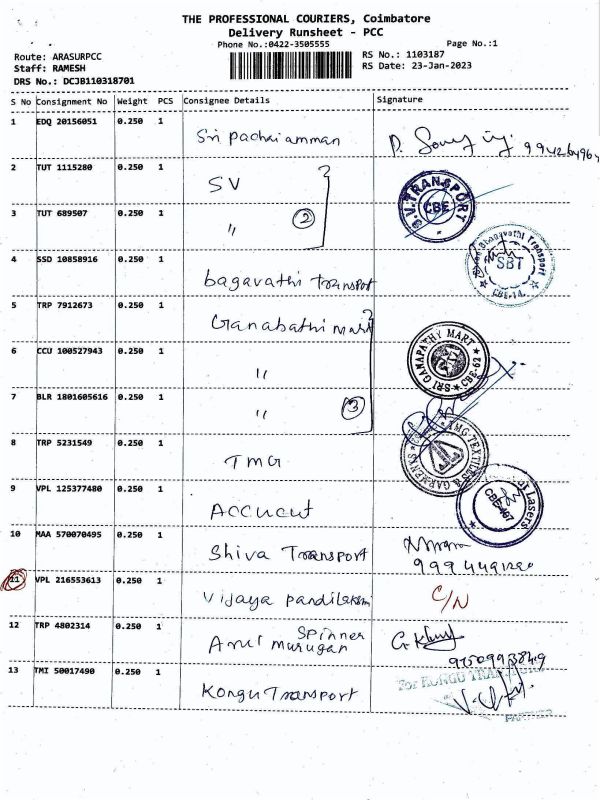 THE PROFESSIONAL COURIERS, Coimbatore
Delivery Runsheet - PCC
Phone No.:0422-3505555 Page No.:1
Route: ARASURPCC RS No.: 1103187
Staff: RAMESH RS Date: 23-Jan-2023
DRS No.: DCJB110318701
S No Consignment No Weight PCS Consignee Details Signature
1 EDQ 20156051 0.250 1 Sri pachaiamman
2 TUT 1115280 0.250 1 SV
S.V. TRANSPORT CBE
3 TUT 689507 0.250 1 〃 2
SBT
CBE-14.
4 SSD 10858916 0.250 1 bagavathi transport
5 TRP 7912673 0.250 1 Ganabathi mart
SRI GANAPATHY MART CBE-62
6 CCU 100527943 0.250 1 〃
7 BLR 1801605616 0.250 1 〃 3
8 TRP 5231549 0.250 1 TMG
TMG TEXTILES & GARMENTS
9 VPL 125377480 0.250 1 Accucut
Lasers
10 MAA 570070495 0.250 1 Shiva Transport
11 VPL 216553613 0.250 1 Vijaya C/N
12 TRP 4802314 0.250 1 Spinner
Arul murugan
13 TMI 50017490 0.250 1 Kongu Transport
For KONGU
PARTNER